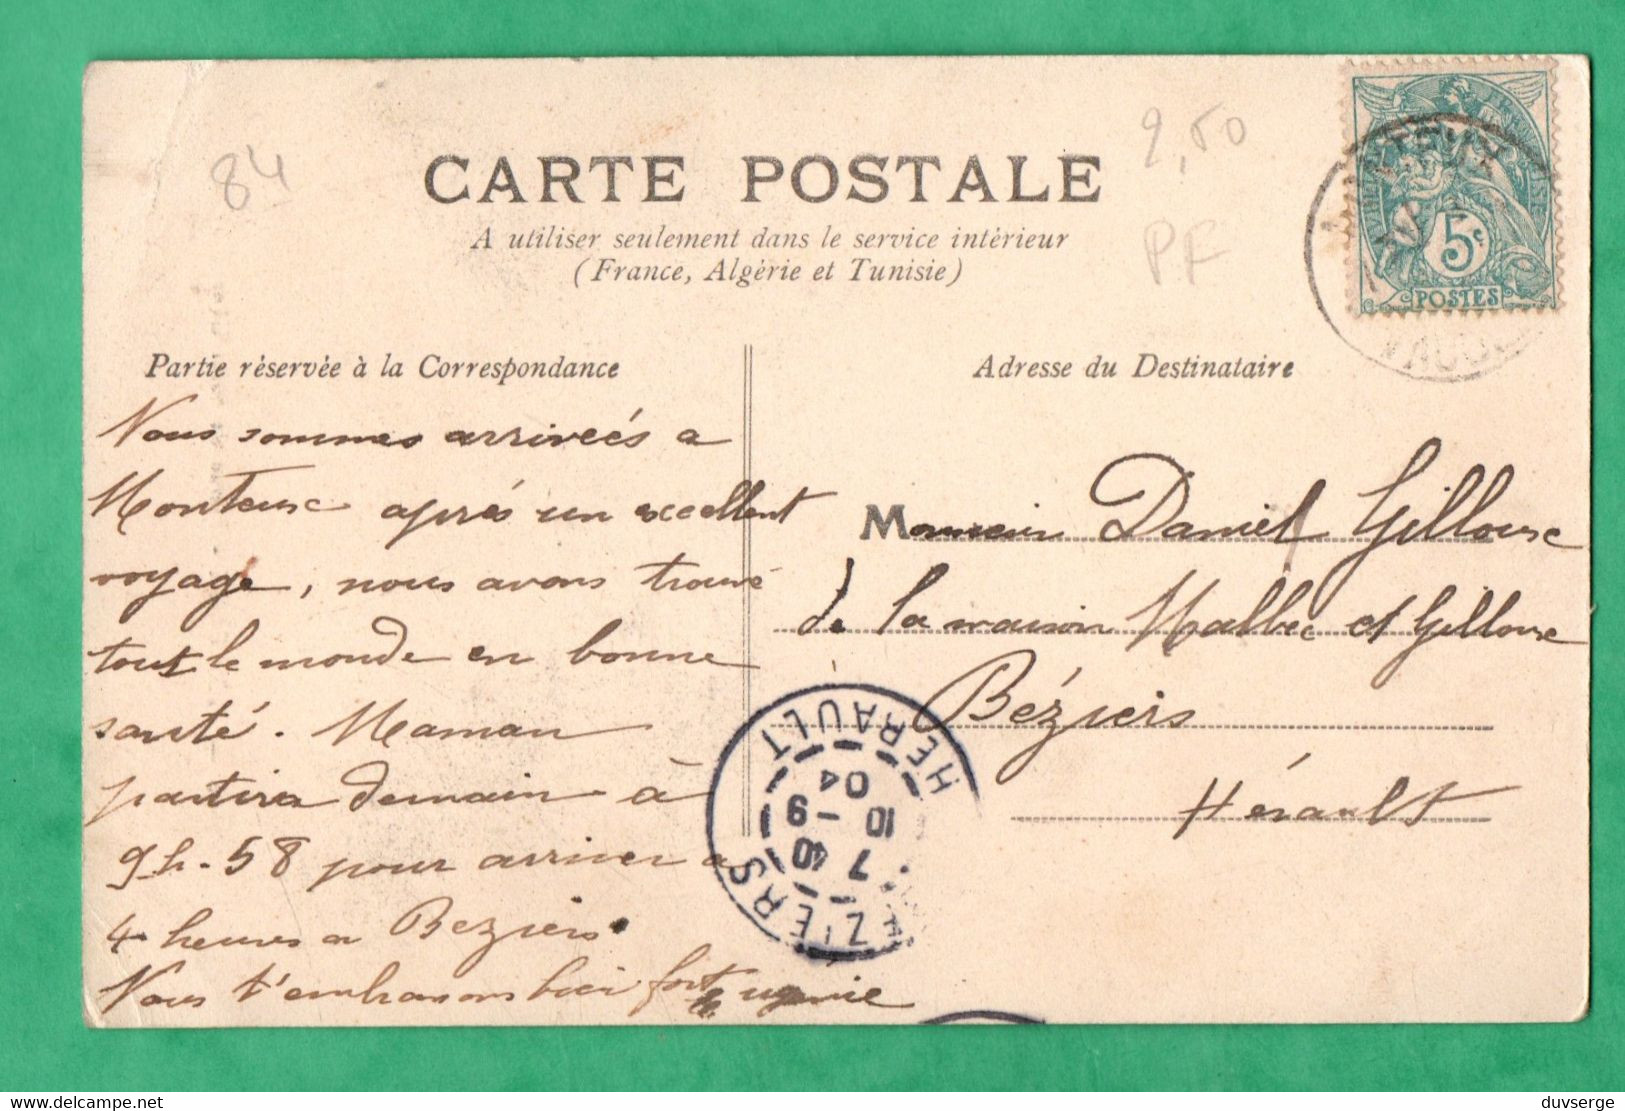 84
2,50
PF
CARTE POSTALE
A utiliser seulement dans le service intérieur
(France, Algérie et Tunisie)
5c
POSTES
Partie réservée à la Correspondance
Nous sommes arriveés a
Monteux après un excellent
voyage, nous avons trouvé
tout le monde en bonne
santé. Maman
partira demain à
9h-58 pour arriver a
4 heures a Beziers
Nous t'embrassons bien fort
Adresse du Destinataire
Monsieur Daniel Gillouse
de la maison Malbec et Gillouse
Béziers
Hérault
BEZIERS
7 40
10 -9
04
HERAULT
delcampe.net
duvserge